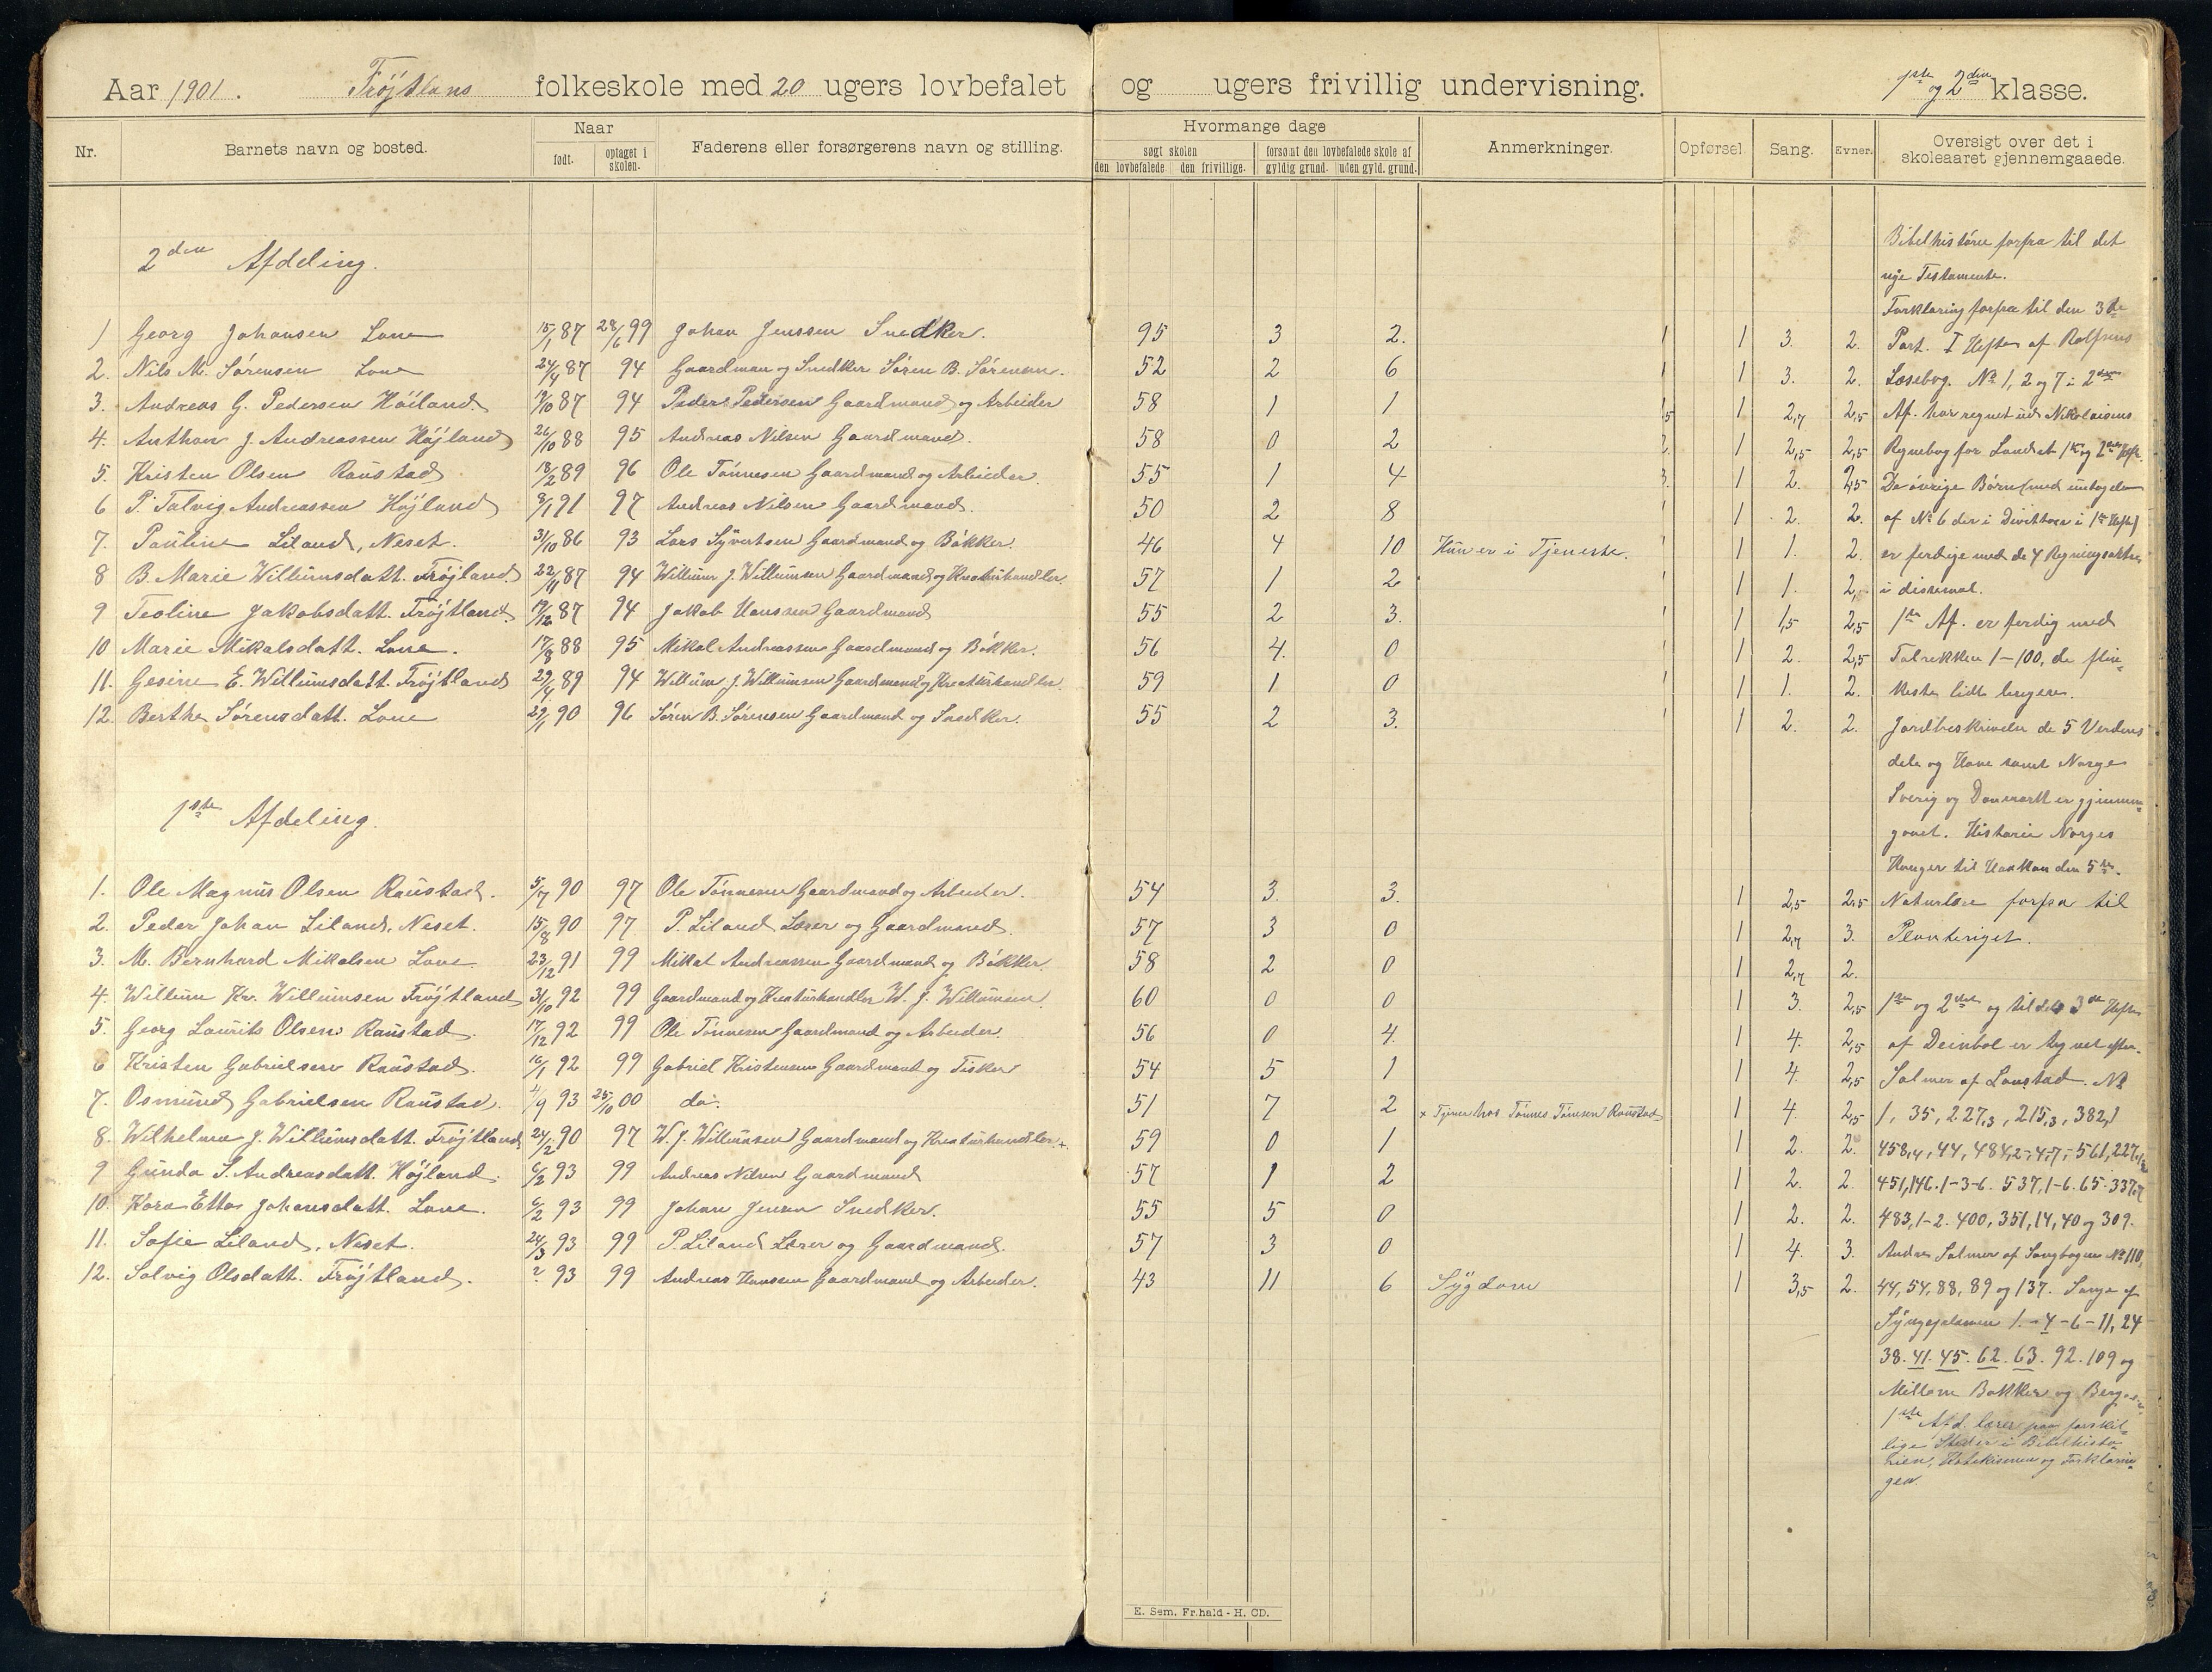 Aar 1901. Tröjtlans folkeskole med 20 ugers lovbefalet og ugers frivillig undervisning. 1ste og 2den klasse.
Nr. Barnets navn og bosted. Naar født. optaget i skolen. Faderens eller forsørgerens navn og stilling. Hvormange dage søgt skolen den lovbefalede den frivillige. forsømt den lovbefalede skole af gyldig grund. uden gyld. grund. Anmerkninger. Opførsel. Sang. Evner. Oversigt over det i skoleaaret gjennemgaaede.
Bibelhistorie forfra til det
2den Afdeling.
nye Testamente.
Forklaring forfra til den 3die
1 Georg Johansen Lone 15/1 87 28/6 99 Johan Jenssen Snedker. 95 3 2. 1 1 3. 2. Part. I Hefte af Rolfsens
2. Nils M. Sørensen Lone 24/4 87 94 Gaardman og Snedker Søren B. Sørensen. 52 2 6 1 1 3. 2. Læsebog. No 1, 2 og 7 i 2den
3. Andreas G. Pedersen Höiland. 19/10 87 94 Peder Pedersen Gaardmand og Arbeider 58 1 1 1,5 1 2,7 2,5 Af. har regnet ud Nikolaisens
4. Anthon J. Andreassen Höjland 26/10 88 95 Andreas Nilsen Gaardmand. 58 0 2 2. 1 2,5 2,5 Regnebog for Landet 1ste og 2det Hefte.
5. Kristen Olsen Raustad 18/2 89 96 Ole Tönnesen Gaardmand og Arbeider. 55 1 4 3. 1 2. 2,5 De övrige Börn (med undtagelse
6 P. Talvig Andreassen Höjland 8/1 91 97 Andreas Nilsen Gaardmand. 50 2 8 1 2. 2. af No 6 der i Divition i 1ste Hefte)
7. Pauline Liland, Neset. 31/10 86 93 Lars Syvertsen Gaardmand og Bökker. 46 4 10 Hun er i Tjeneste. 1 1 1. 2. er ferdige med de 4 Regningsarter
8 B. Marie Willumsdatt. Tröjtland. 22/11 87 94 Willum J. Willumsen Gaardmand og Kreaturhandler. 57 1 2 1 1 1. 2, i desimal.
9 Teoline Jakobsdatt. Tröjtland 19/12 87 94 Jakob Hanssen Gaardmand 55 2 3. 1 1 1,5 2,5 1ste Af. er ferdig med
10 Marie Mikalsdatt. Lone. 17/8 88 95 Mikal Andreassen Gaardmand og Bökker. 56 4. 0 1 1 2. 2,5 Talrekken 1-100, de flin-
11. Gesine E. Willumsdatt. Tröjtland 29/4 89 94 Willum J. Willumsen Gaardmand og Kreaturhandler. 59 1 0 1 1 1. 2. keste lidt lengere.
12. Berthe Sørensdatt. Lone 29/1 90 96 Søren B. Sørensen Gaardmand og Snedker. 55 2 3. 1 1 2. 2. Jordbeskrivelse de 5 Verdens
dele og Have samt Norge
Sverig og Danmark er gjennem-
1ste Afdeling.
gaaet. Historie Norges
Konger til Haakon den 5te.
1. Ole Magnus Olsen Raustad. 5/7 90 97 Ole Tönnesen Gaardmand og Arbeider. 54 3. 3. 1 2,5 2,5 Naturlære forfra til
2. Peder Johan Liland, Neset. 15/8 90 97 P. Liland Lærer og Gaardmand. 57 3 0 1 2,7 3. Planteriget.
3. M. Bernhard Mikalsen Lone. 23/12 91 99 Mikal Andreassen Gaardmand og Bökker. 58 2 0 1 2,7 2.
4. Willum Kr. Willumsen Tröjtland 31/10 92 99 Gaardmand og Kreaturhandler W. J. Willumsen. 60 0 0 1 3. 2,5 1ste og 2det og til dels 3die Hefte
5. Georg Laurits Olsen Raustad. 17/12 92 99 Ole Tönnesen Gaardmand og Arbeider. 56 0 4. 1 4. 2,5 af Deinbol er tegnet efter.
6 Kristen Gabrielsen Raustad. 16/1 92 99 Gabriel Kristensen Gaardmand og Fisker 54 5 1 1 4. 2,5 Salmer af Lanstad. No
7. Osmund Gabrielsen Raustad. 4/9 93 25/10 00 do. 51 7 2 × Tjener hos Tönnes Tönesen Raustad 1 4. 2,5 1, 35, 227,3, 215,3, 382,1
8. Wilhelma J. Willumsdatt. Tröjtland 24/2 90 97 W. J. Willumsen Gaardmand og Kreaturhandler. × 59 0 1 1 2. 2. 458,4, 44, 484,2-4-7,- 561, 227,
9 Gunda S. Andreasdatt. Höjland. 6/2 93 99 Andreas Nilsen Gaardmand 57 1 2 1 2. 2. 451, 146. 1-3-6. 537, 1-6. 65. 337,
10. Kara Etta Johansdatt. Lone. 6/2 93 99 Johan Jensen Snedker. 55 5 0 1 2. 2. 483, 1-2. 400, 351, 14, 40 og 309.
11. Sofie Liland, Neset. 24/3 93 99 P. Liland Lærer og Gaardmand. 57 3 0 1 4. 3. Andre Salmer af Sangbogen No 110,
12. Solvig Olsdatt. Tröjtland. ? 93 99 Andreas Hanssen Gaardmand og Arbeider. 43 11 6 Sygdom 1 3,5 2. 44, 54, 88, 89 og 137. Sange af
1.-4-6-11, 24
38. 41. 45. 62. 63. 92. 109 og
Millom Bakker og Berg
1ste Afd. lærer paa forskil-
lige Steder i Bibelhisto-
rien, Katekismen og Forklarin-
gen.
E. Sem. Fr.hald - H. CD.